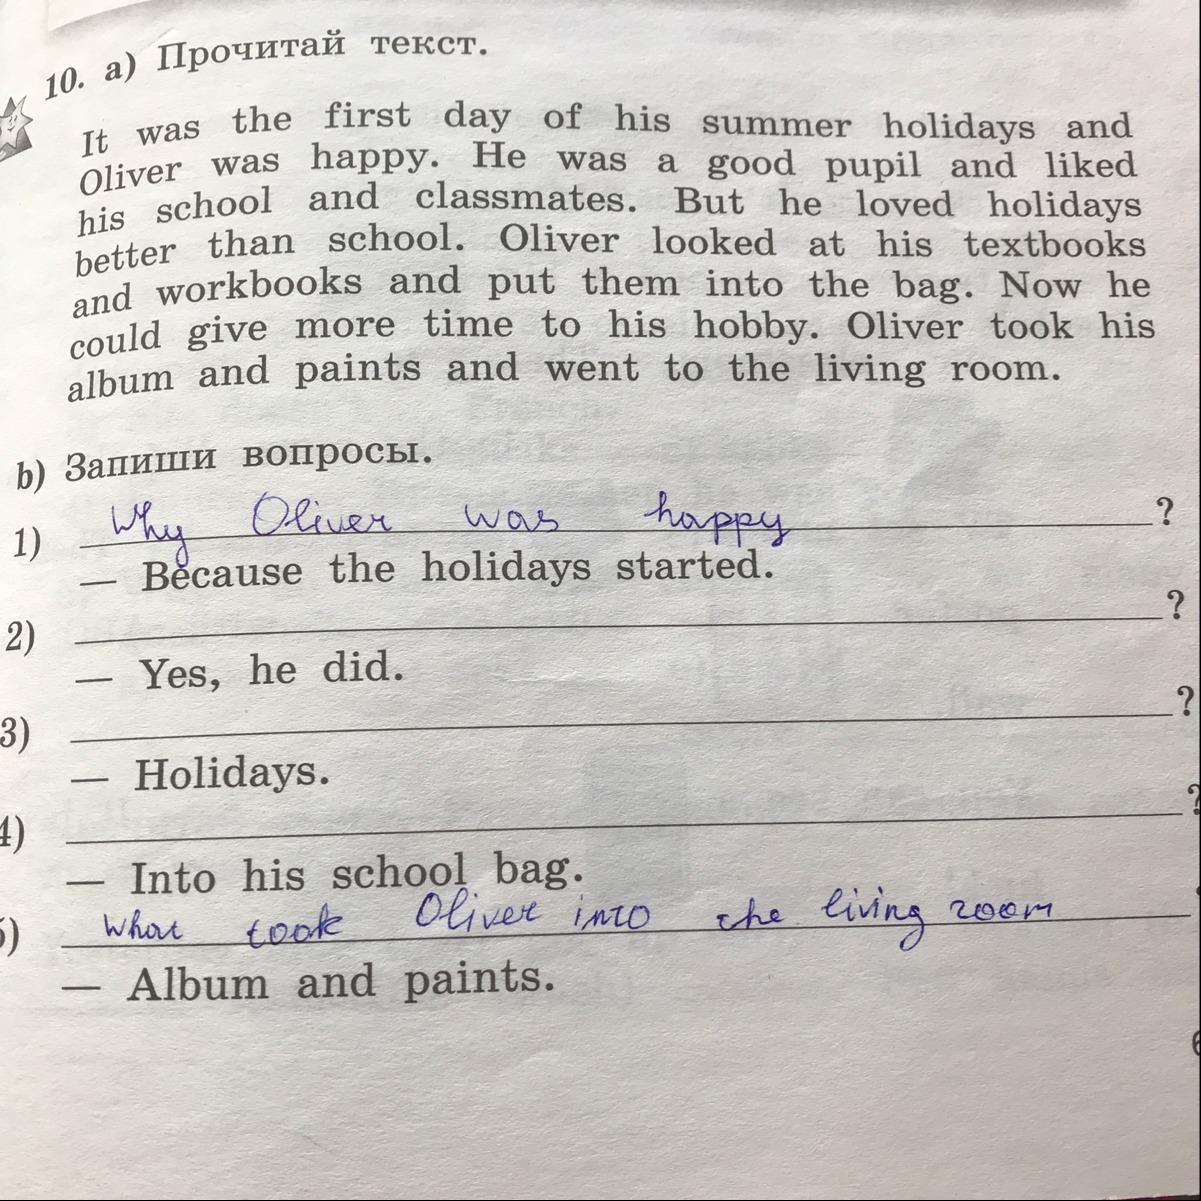 10. a) Прочитай текст.
It was the first day of his summer holidays and
Oliver was happy. He was a good pupil and liked
his school and classmates. But he loved holidays
better than school. Oliver looked at his textbooks
and workbooks and put them into the bag. Now he
could give more time to his hobby. Oliver took his
album and paints and went to the living room.
b) Запиши вопросы.
1) Why Oliver was happy ?
— Because the holidays started.
2) ?
— Yes, he did.
3) ?
— Holidays.
4) ?
— Into his school bag.
5) What took Oliver into the living room
— Album and paints.